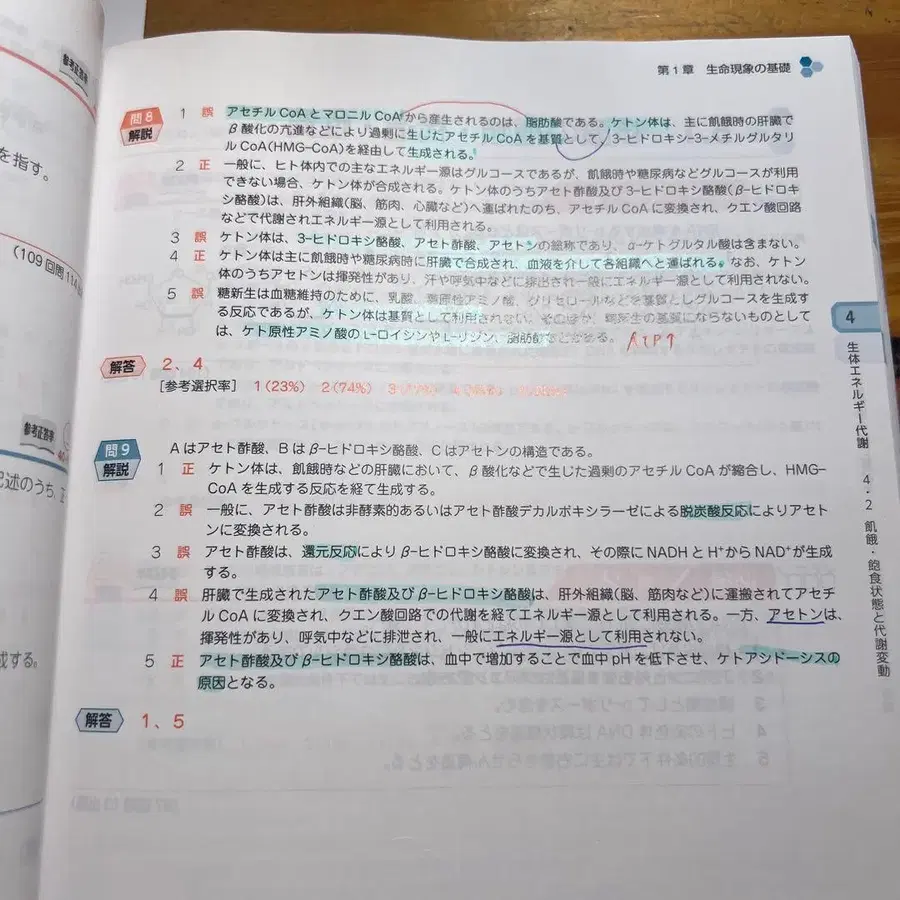 参考正答率
を指す。
(109回問114
参考正答率
記述のうち、正
成する。
第1章 生命現象の基礎
問8
解説
1 誤 アセチル CoA とマロニル CoA から産生されるのは、脂肪酸である。ケトン体は、主に飢餓時の肝臓で
β酸化の亢進などにより過剰に生じたアセチル CoA を基質として、3-ヒドロキシ-3-メチルグルタリ
ル CoA(HMG-CoA)を経由して生成される。
2 正 一般に、ヒト体内での主なエネルギー源はグルコースであるが、飢餓時や糖尿病などグルコースが利用
できない場合、ケトン体が合成される。ケトン体のうちアセト酢酸及び 3-ヒドロキシ酪酸(β-ヒドロキ
シ酪酸)は、肝外組織(脳、筋肉、心臓など)へ運ばれたのち、アセチル CoA に変換され、クエン酸回路
などで代謝されエネルギー源として利用される。
3 誤 ケトン体は、3-ヒドロキシ酪酸、アセト酢酸、アセトンの総称であり、α-ケトグルタル酸は含まない。
4 正 ケトン体は主に飢餓時や糖尿病時に肝臓で合成され、血液を介して各組織へと運ばれる。なお、ケトン
体のうちアセトンは揮発性があり、汗や呼気中などに排出され一般にエネルギー源として利用されない。
5 誤 糖新生は血糖維持のために、乳酸、糖原性アミノ酸、グリセロールなどを基質としグルコースを生成す
る反応であるが、ケトン体は基質として利用されない。そのほか、糖新生の基質にならないものとして
は、ケト原性アミノ酸の L-ロイシンや L-リジン、脂肪酸などがある。
解答 2、4
[参考選択率] 1(23%) 2(74%)
問9
解説
A はアセト酢酸、B は β-ヒドロキシ酪酸、C はアセトンの構造である。
1 正 ケトン体は、飢餓時などの肝臓において、β 酸化などで生じた過剰のアセチル CoA が縮合し、HMG-
CoA を生成する反応を経て生成する。
2 誤 一般に、アセト酢酸は非酵素的あるいはアセト酢酸デカルボキシラーゼによる脱炭酸反応によりアセト
ンに変換される。
3 誤 アセト酢酸は、還元反応により β-ヒドロキシ酪酸に変換され、その際に NADH と H⁺から NAD⁺が生成
する。
4 誤 肝臓で生成されたアセト酢酸及び β-ヒドロキシ酪酸は、肝外組織(脳、筋肉など)に運搬されてアセチ
ル CoA に変換され、クエン酸回路での代謝を経てエネルギー源として利用される。一方、アセトンは、
揮発性があり、呼気中などに排泄され、一般にエネルギー源として利用されない。
5 正 アセト酢酸及び β-ヒドロキシ酪酸は、血中で増加することで血中 pH を低下させ、ケトアシドーシスの
原因となる。
解答 1、5
4
生体エネルギー代謝
4・2 飢餓・飽食状態と代謝変動